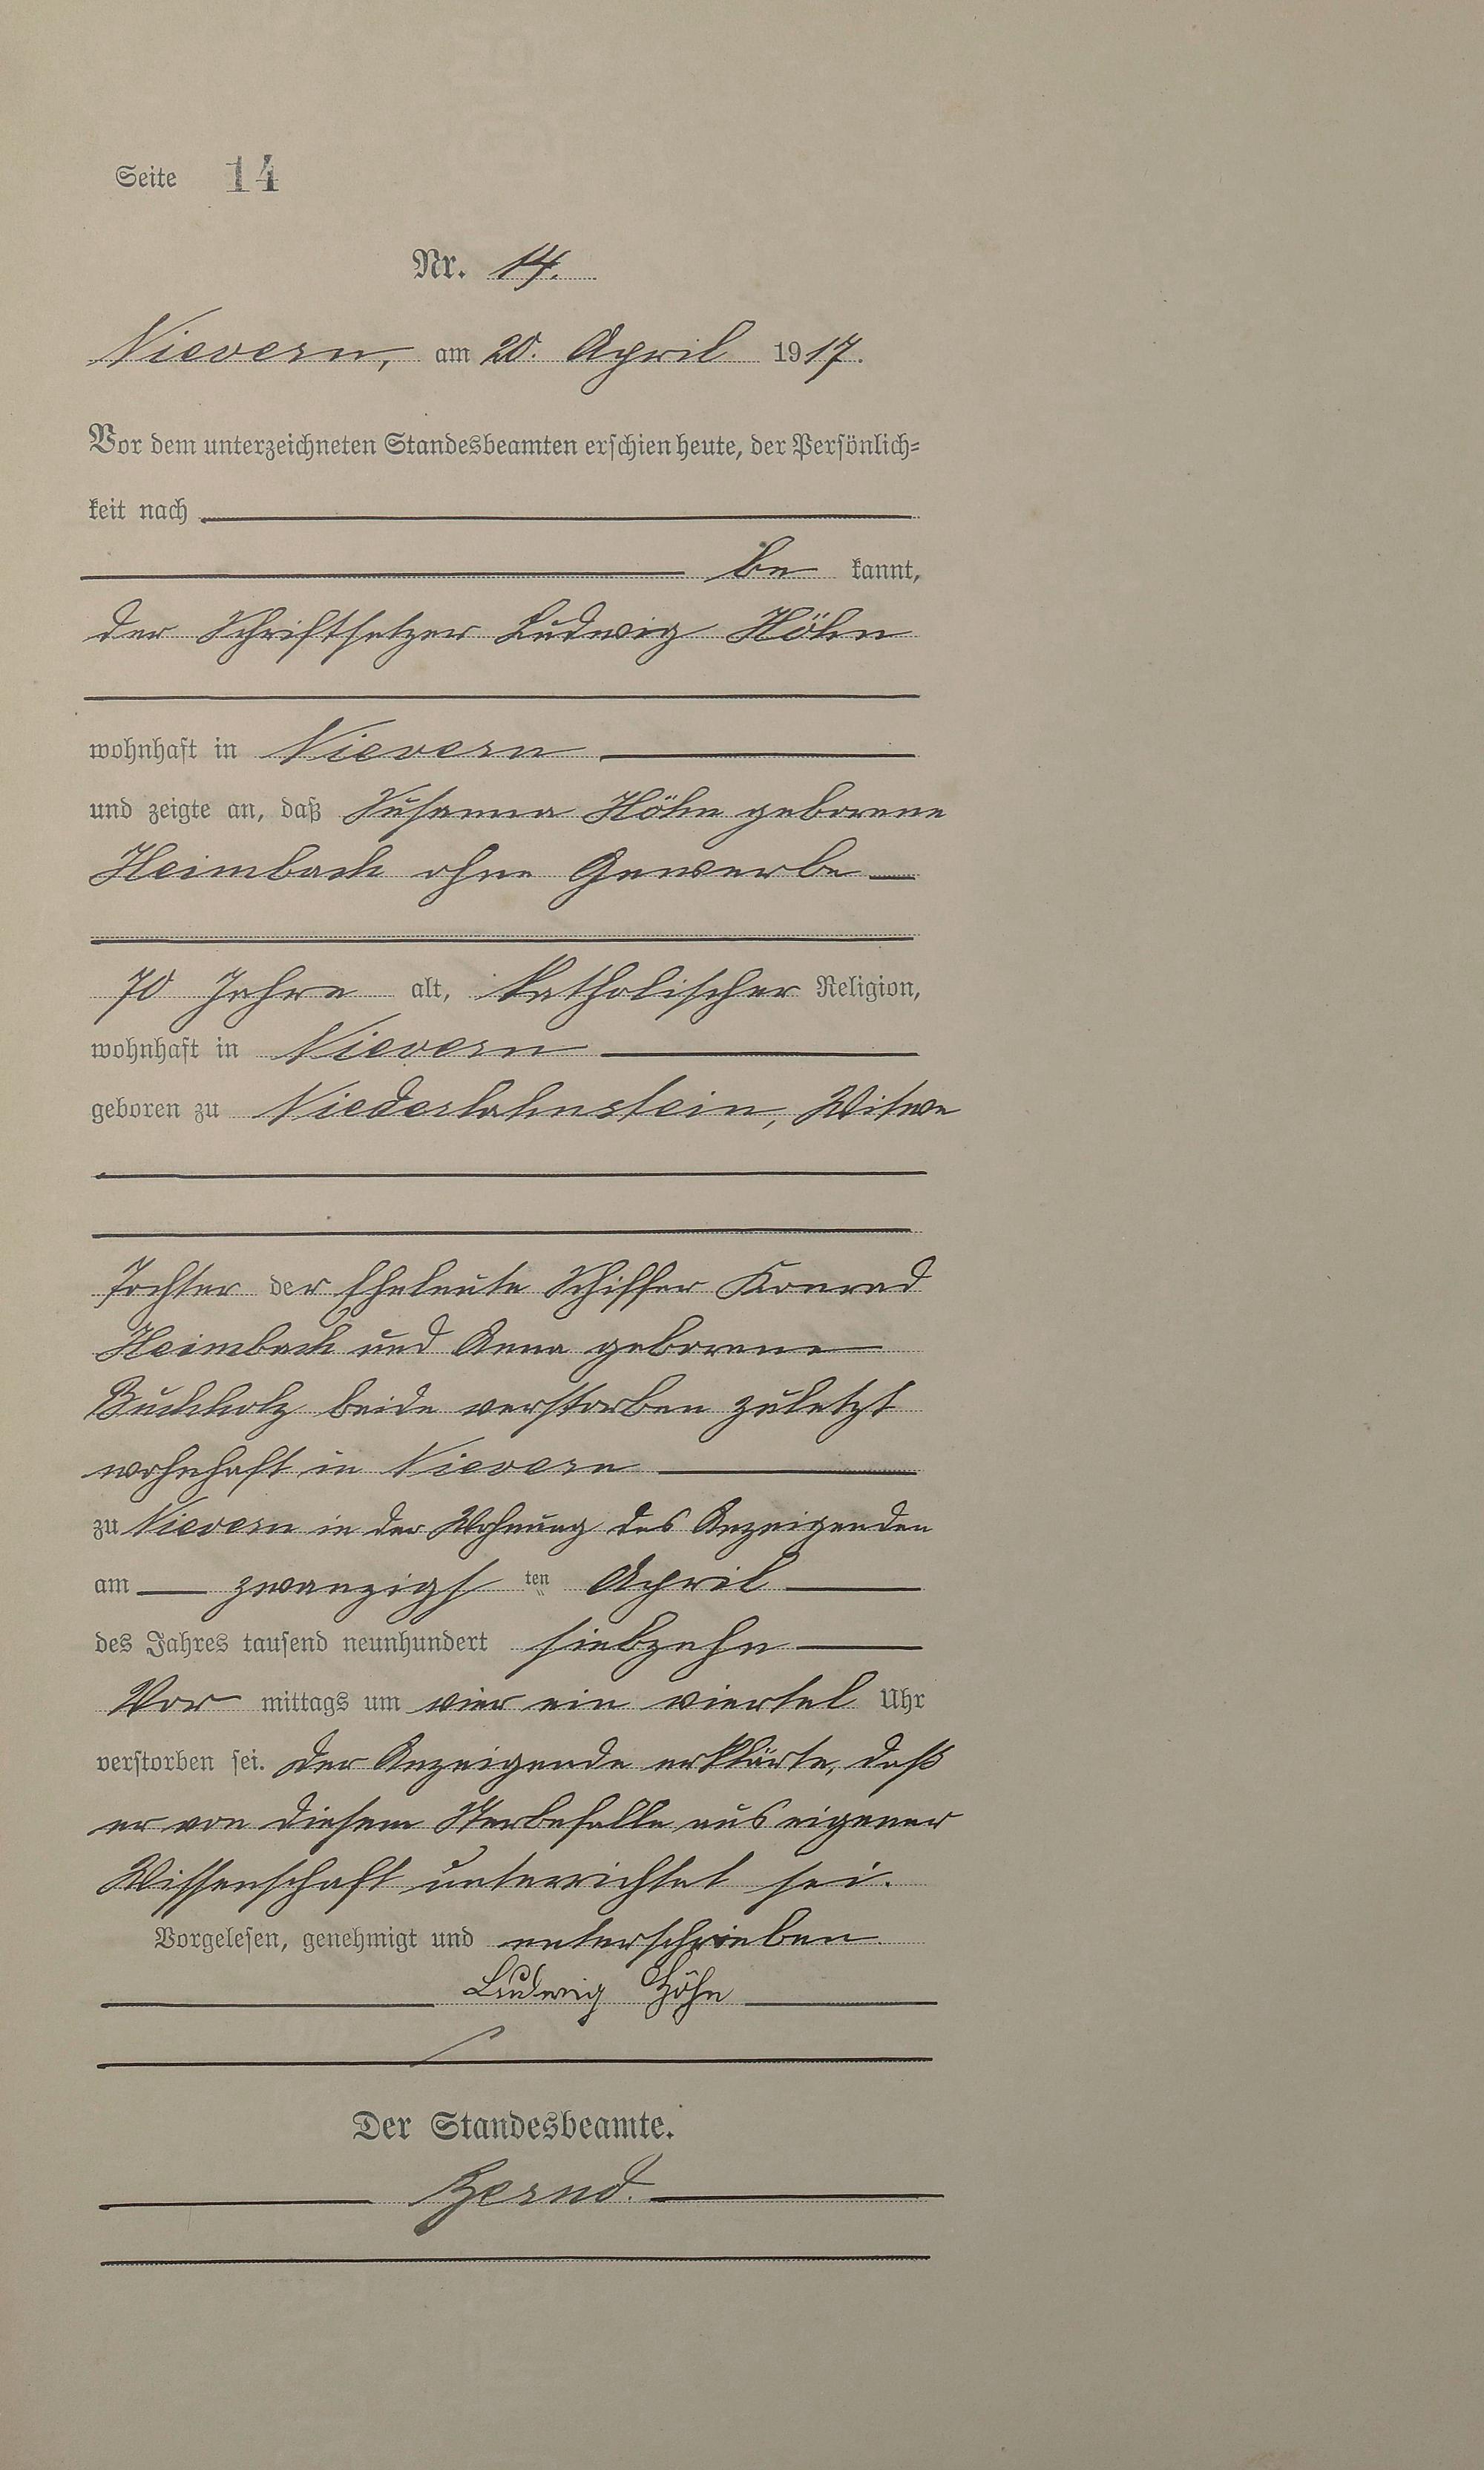 Seite 14
Nr. 14.
Nievern, am 20. April 1917.
Vor dem unterzeichneten Standesbeamten erschien heute, der Persönlich-
keit nach
be kannt,
der Schriftsetzer Ludwig Höhn
wohnhaft in Nievern
und zeigte an, daß Susanna Höhn geborene
Heimbach ohne Gewerbe
70 Jahre alt, katholischer Religion,
wohnhaft in Nievern
geboren zu Niederlahnstein, Witwe
Tochter der Eheleute Schiffer Konrad
Heimbach und Anna geborene
Buchholz beide verstorben zuletzt
wohnhaft in Nievern
zu Nievern in der Wohnung des Anzeigenden
am zwanzigsten April
des Jahres tausend neunhundert siebzehn
Vor mittags um vier ein viertel Uhr
verstorben sei. Der Anzeigende erklärte, daß
er von diesem Sterbefalle aus eigener
Wissenschaft unterrichtet sei.
Vorgelesen, genehmigt und unterschrieben.
Ludwig Höhn
Der Standesbeamte.